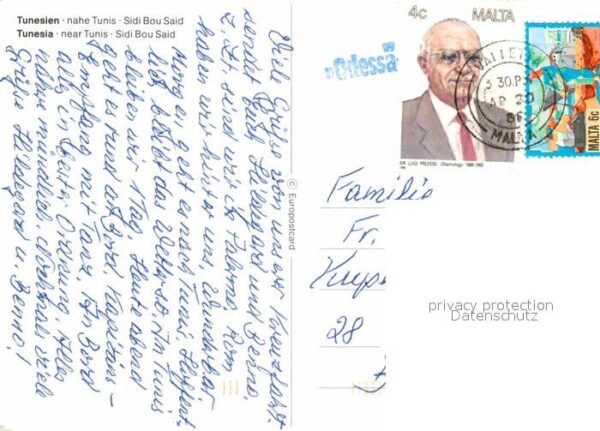 Tunesien · nahe Tunis · Sidi Bou Said
Tunesia · near Tunis · Sidi Bou Said
Viele Grüße von unserer Kreuzfahrt
sendet Euch Hildegard und Benno,
z. Z. sind wir in Palermo, Rom
haben wir hinter uns, Wunderbar,
Morgen geht es nach Tunis, Hoffent-
lich bleibt das Wetter so, In Tunis
bleiben wir 1 Tag, Heute abend
geht es rund an Bord, Kapitäns-
Empfang mit Tanz, An Bord
alles beste Ordnung Alles
übrige mündlich, Nochmal viele
Grüße Hildegard u. Benno!
© Europostcard
"Odessa"
4c MALTA
SIR LUIGI PREZIOSI
VALLETTA
5 30 P
AP 20
MALTA
MALTA 6c
Familie
Fr.
28
privacy protection
Datenschutz